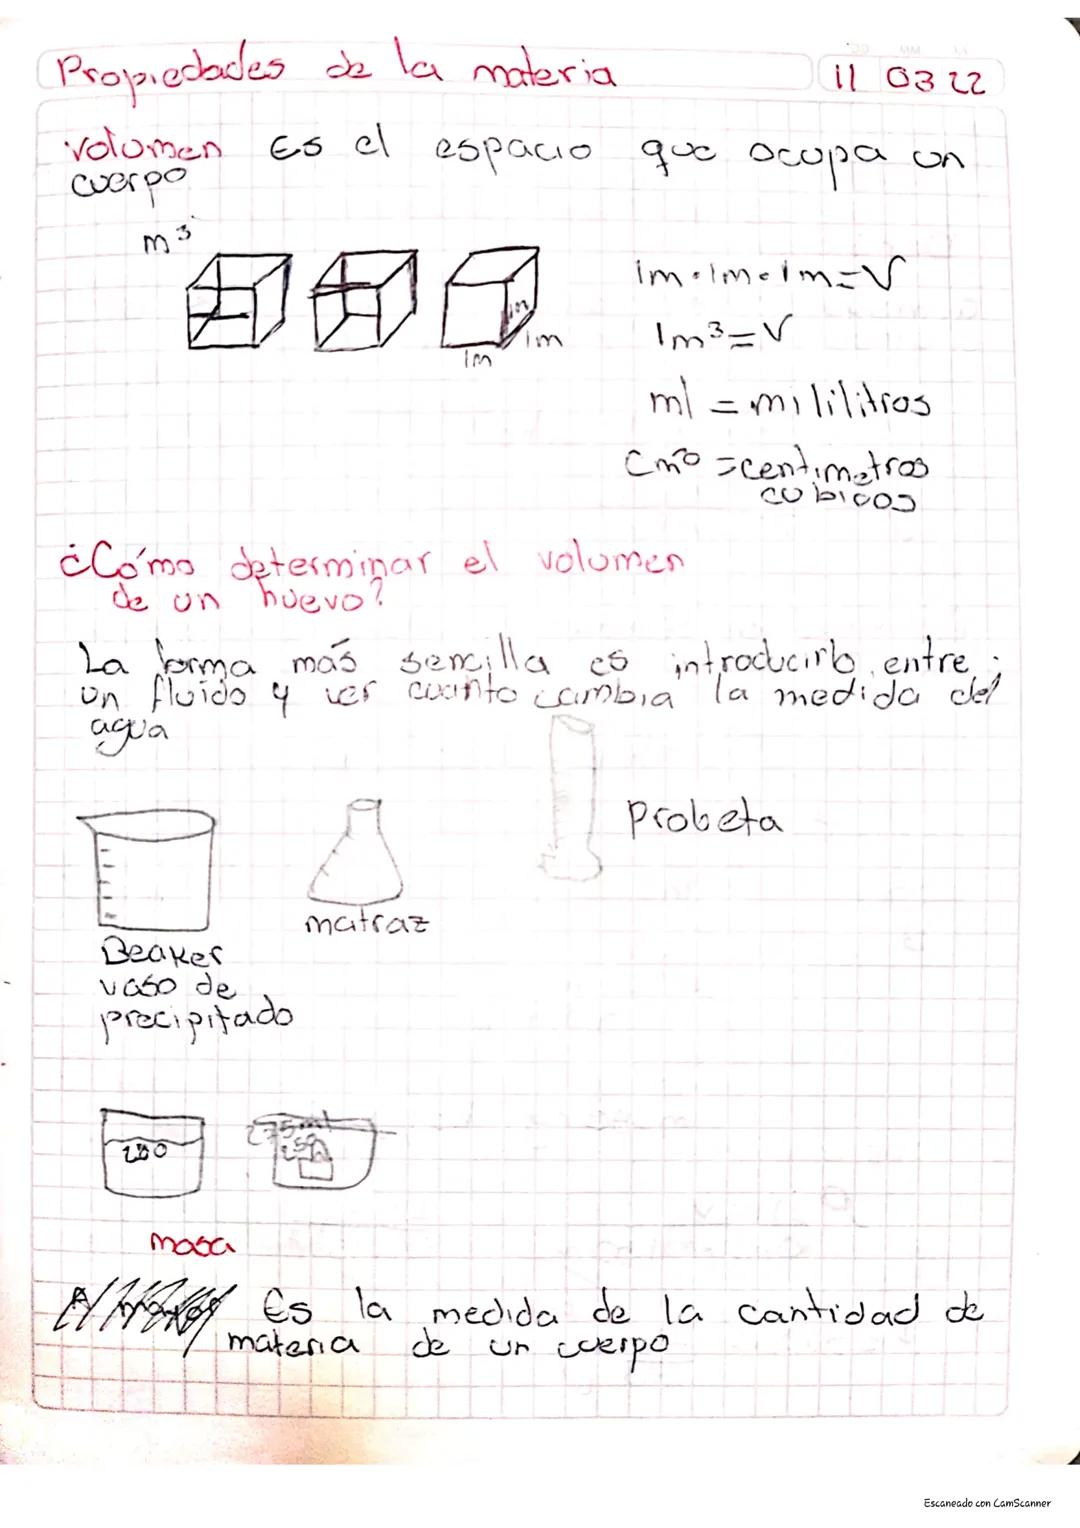 Propiedades de la materia
11 03 22
volumen Es el espacio que ocupa un
cuerpo
m³
1m·1m·1m=V
1m³=V
1m
1m
1m
ml = mililitros
Cm³ =centimetros
cubicos
¿Cómo determinar el volumen
de un huevo?
La forma más sencilla es introducirlo entre
un fluido y ver cuanto cambia la medida del
agua
Probeta
matraz
Beaker
vaso de
precipitado
250
275ml
250
masa
Es la medida de la cantidad de
materia de un cuerpo
Escaneado con CamScanner